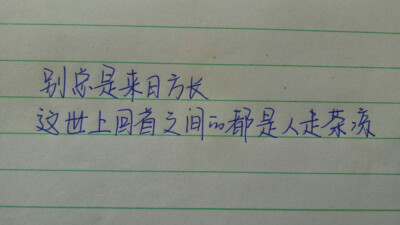 别总是来日方长
这世上回首之间的都是人走茶凉